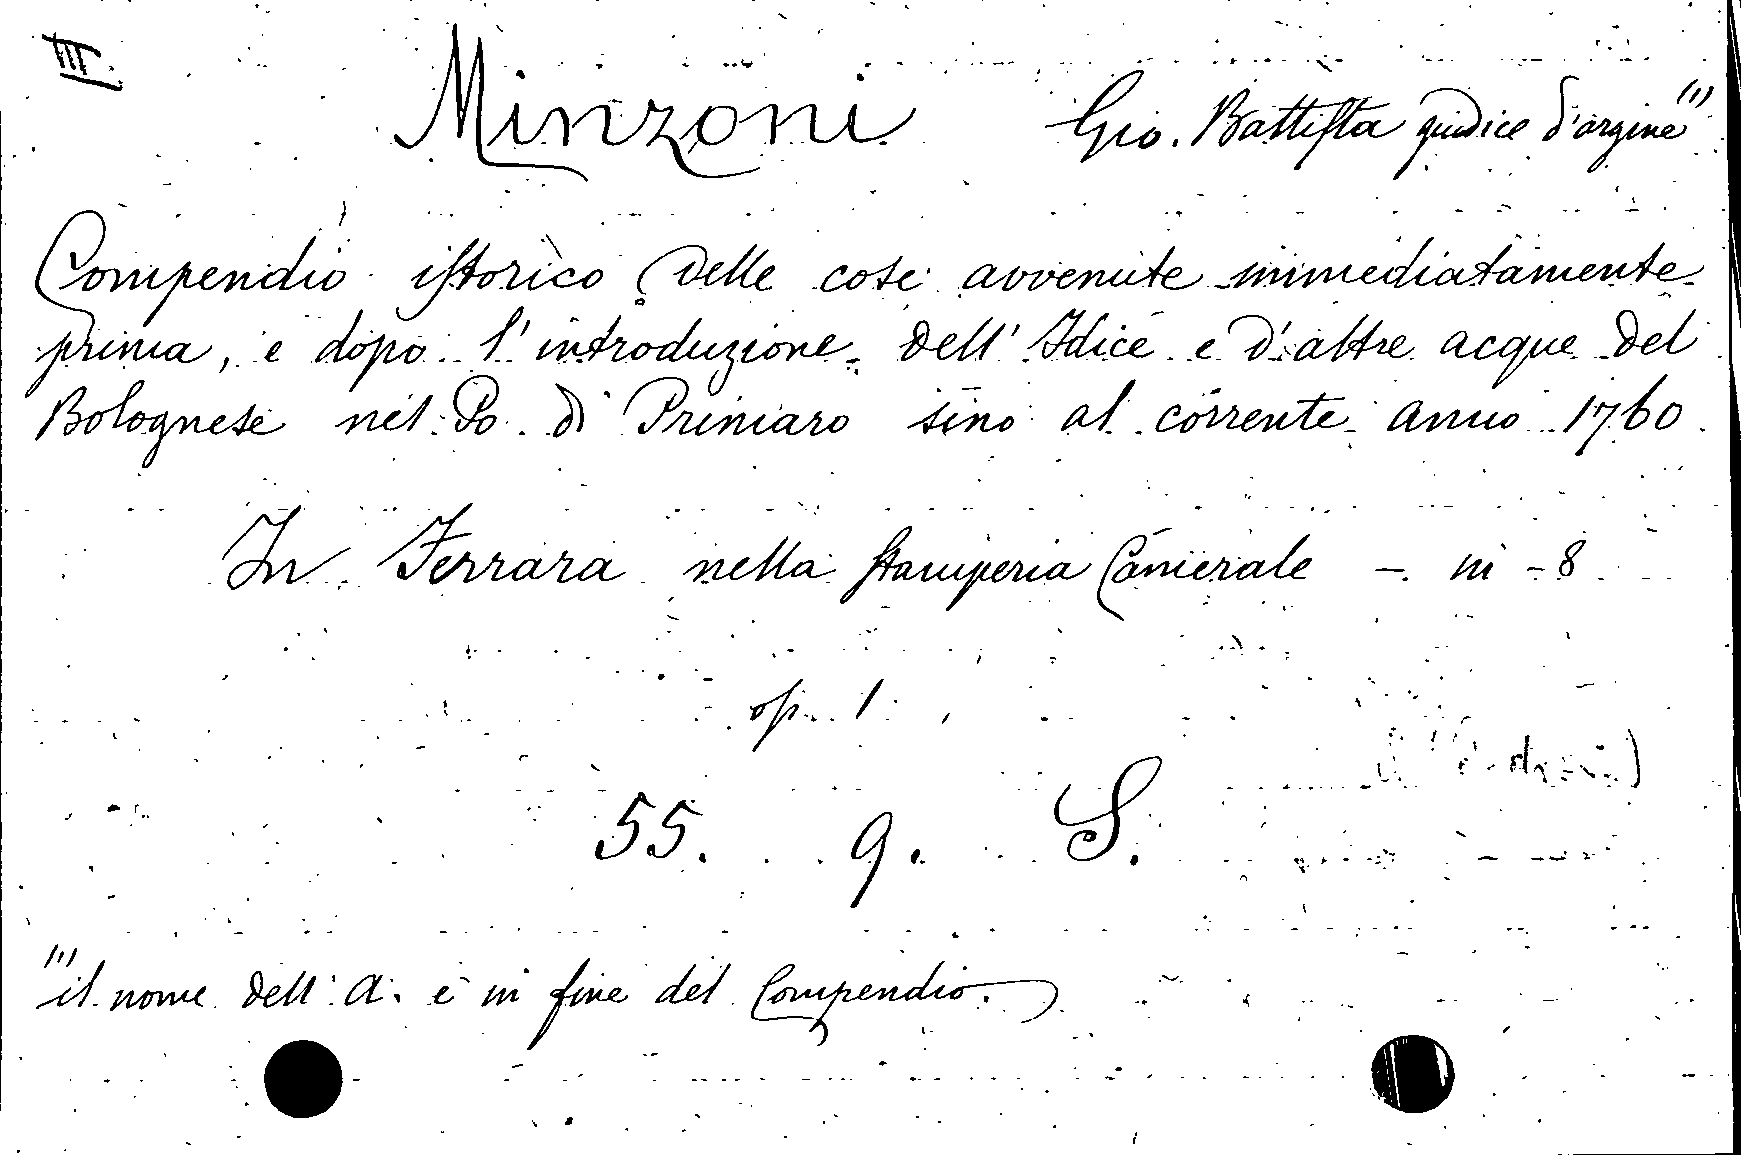 III.
Minzoni Gio. Battista giudice d'argine (1)
Compendio istorico delle cose avvenute immediatamente
prima, e dopo l'introduzione dell'Idice e d'altre acque del
Bolognese nel Po di Primaro sino al corrente anno 1760
In Ferrara nella Stamperia Camerale - in - 8
op. 1
55. 9. S.
(1) il nome dell'A. è in fine del Compendio.